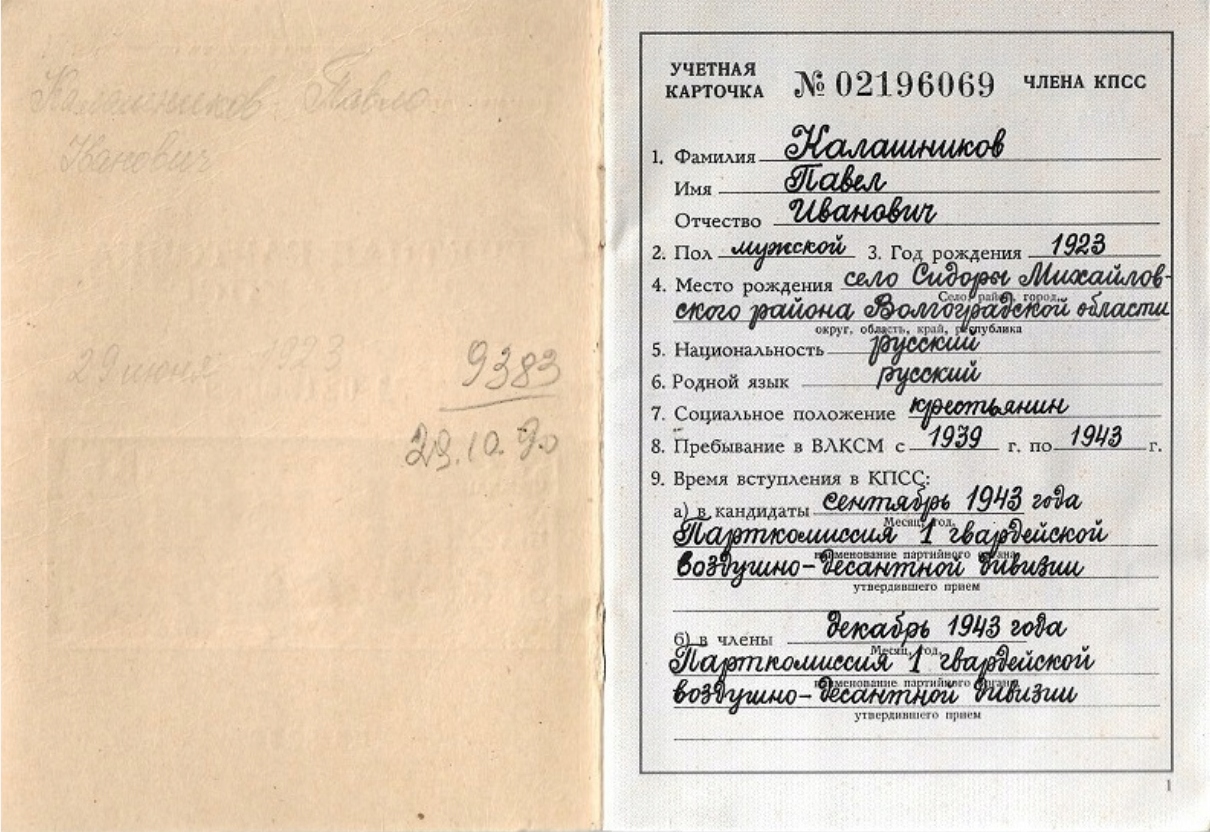 Калашников Павло
Иванович
29 июня 1923
9383
29.10.90
УЧЕТНАЯ КАРТОЧКА № 02196069 ЧЛЕНА КПСС
1. Фамилия Калашников
Имя Павел
Отчество Иванович
2. Пол мужской 3. Год рождения 1923
4. Место рождения село Сидоры Михайлов-
Село, район, город,
ского района Волгоградской области
округ, область, край, республика
5. Национальность русский
6. Родной язык русский
7. Социальное положение крестьянин
8. Пребывание в ВЛКСМ с 1939 г. по 1943 г.
9. Время вступления в КПСС:
а) в кандидаты сентябрь 1943 года
Месяц, год,
Парткомиссия 1 гвардейской
наименование партийного органа,
воздушно-десантной дивизии
утвердившего прием
б) в члены декабрь 1943 года
Месяц, год,
Парткомиссия 1 гвардейской
наименование партийного органа,
воздушно-десантной дивизии
утвердившего прием
1